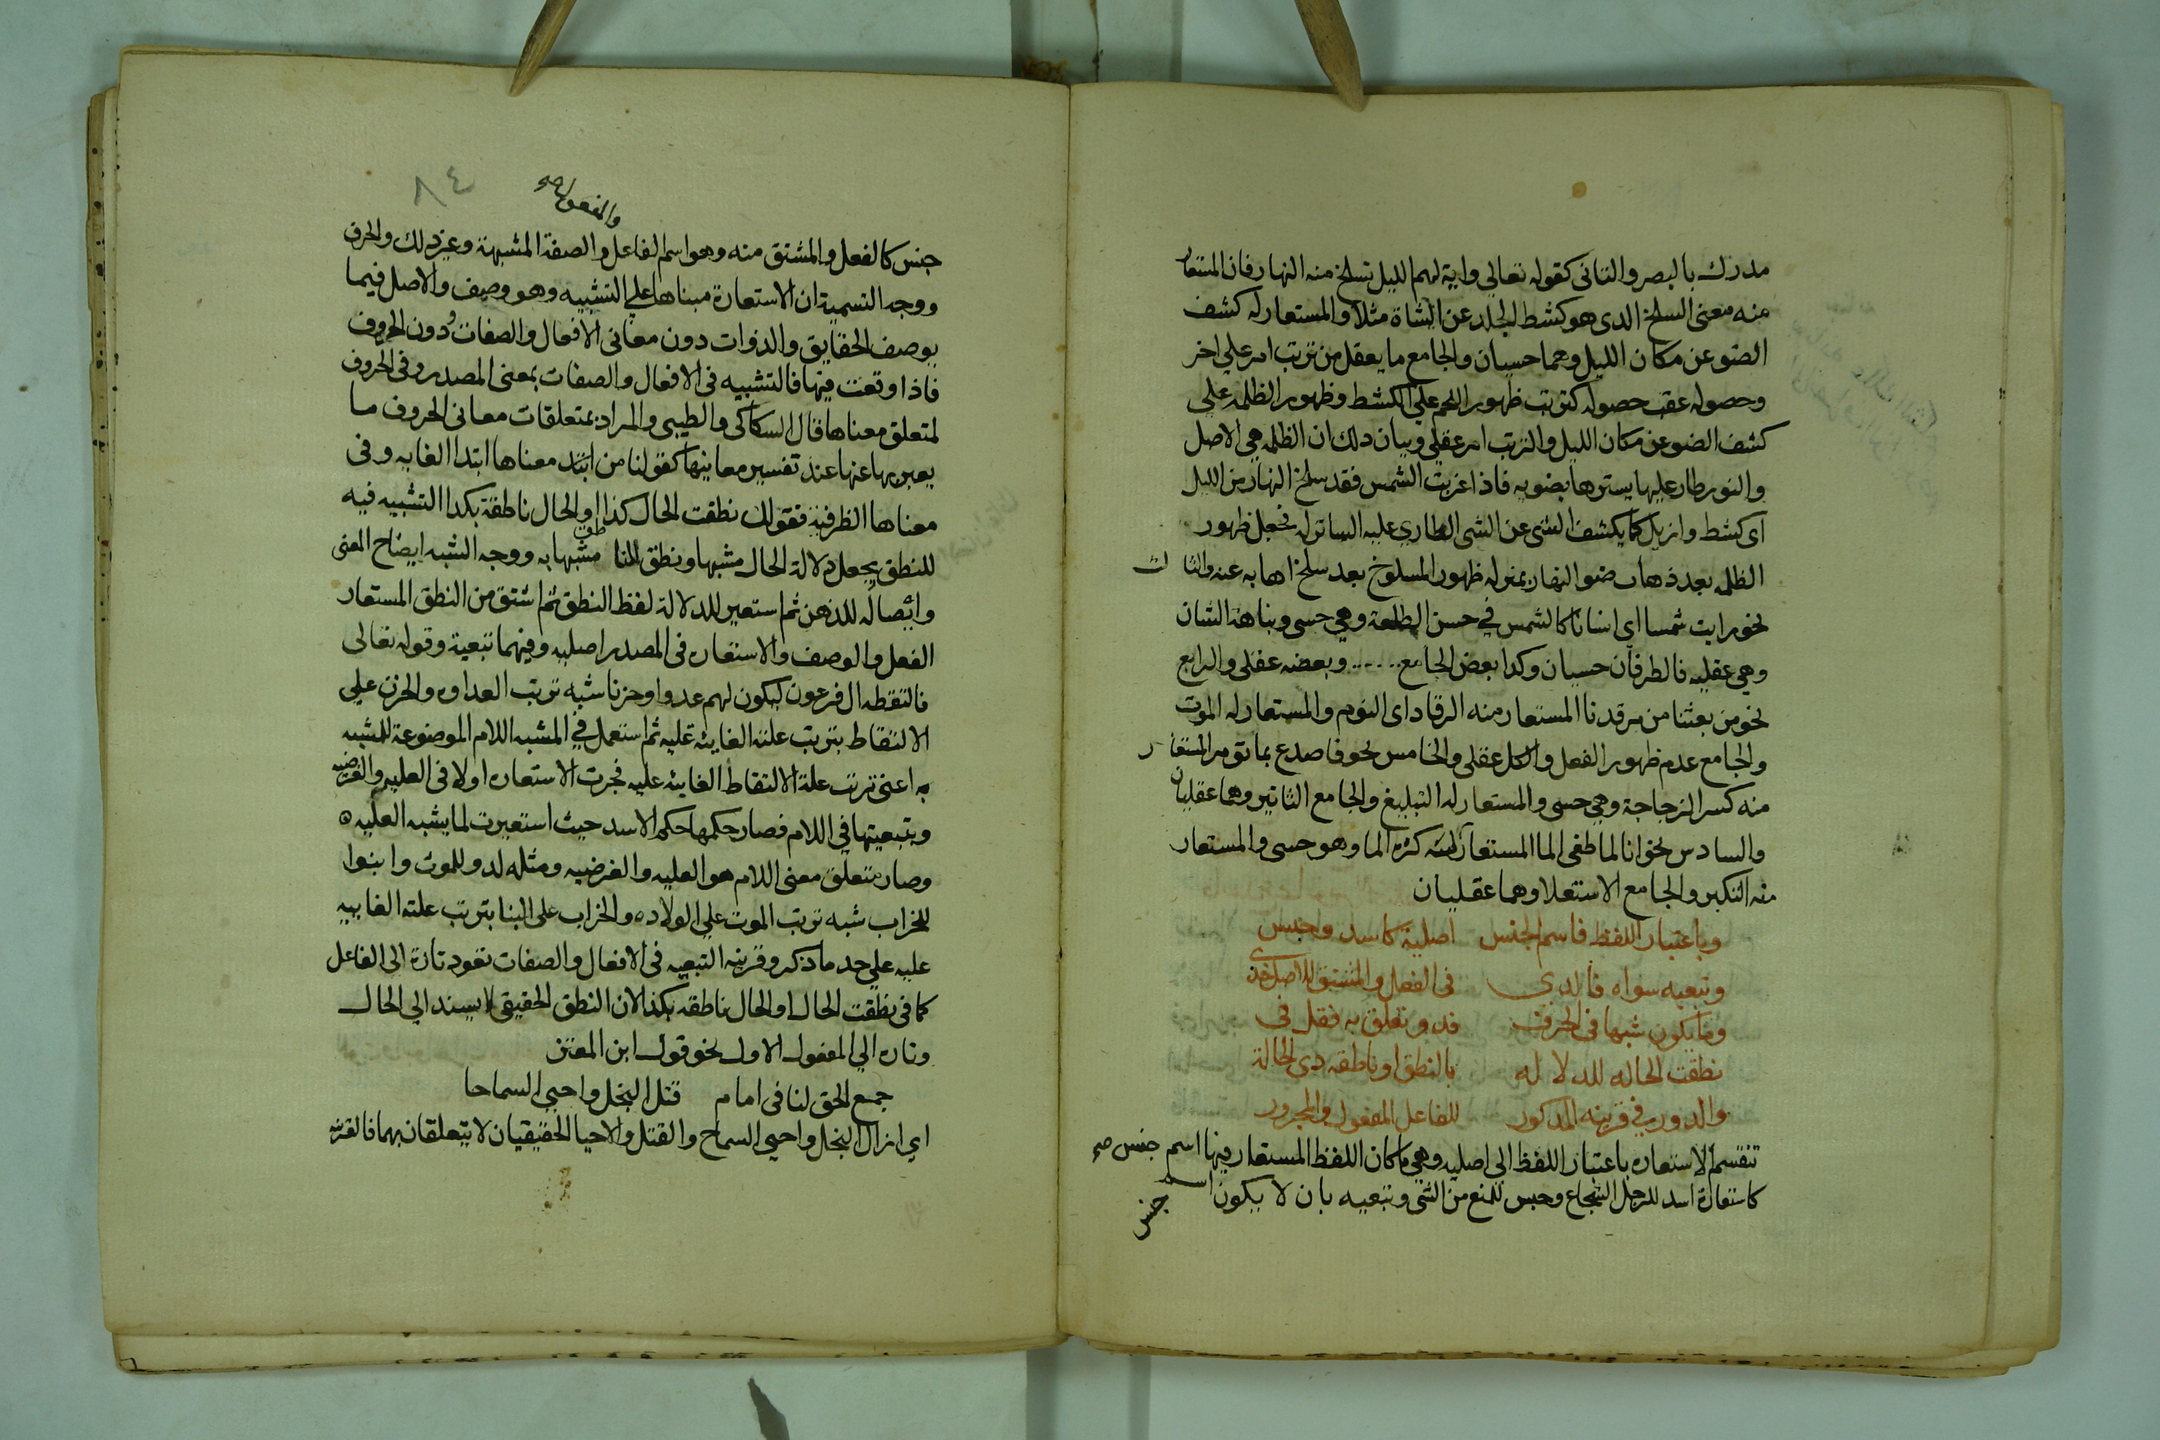 مدرك بالبصر والثانى كقوله تعالى واية لهم الليل نسلخ منه النهار فان المستعار
منه معنى السلخ الدى هو كشط الجلد عن الشاة مثلا والمستعار له كشف
الضو عن مكان الليل وهما حسيان والجامع ما يعقل من ترتب امر على اخر
وحصوله عقب حصوله كترتب ظهور اللحم على الكشط وظهور الظلمه على
كشف الضو عن مكان الليل والترتب امر عقلى وبيان دلك ان الظلمه هي الاصل
والنور طار عليها يسترها بضويه فاذا غربت الشمس فقد سلخ النهار من الليل
اى كشط وازيل كما يكشف الشى عن الشى الطارى عليه الساتر له فجعل ظهور
الظلمه بعد ذهاب ضو النهار بمنزله ظهور المسلوخ بعد سلخ اهابه عنه والثالث
نحو رايت شمسا اى انسانا كالشمس في حسن الطلعة وهي حسى ونباهة الشان
وهي عقليه فالطرفان حسيان وكدا بعض الجامع ..... وبعضه عقلى والرابع
نحو من بعثنا من مرقدنا المستعار منه الرقاد اى النوم والمستعار له الموت
والجامع عدم ظهور الفعل والكل عقلى والخامس نحو فاصدع بما تومر المستعار
منه كسر الزجاجة وهي حسى والمستعار له التبليغ والجامع التاثير وهما عقليان
والسادس نحو انا لما طغى الما المستعار له كثره الما وهو حسى والمستعار
منه التكبر والجامع الاستعلا وهما عقليان
وباعتبار اللفظ فاسم الجنس اصلية كاسد وحبس
وتبعيه سواه فالدى فى الفعل والمشتق للاصل خذى
وما يكون شبها فى الحرف قدر وتعلق به فقل فى
نطقت الحاله للدلاله بالنطق او ناطقه دى الحالة
والدور في قرينه المدكور للفاعل المفعول والمجرور
تنقسم الاستعاره باعتبار اللفظ الى اصليه وهي ما كان اللفظ المستعار فيها اسم جنس صح
كاستعارة اسد للرجل الشجاع وحبس للمنع من الشى وتبعيه بان لا يكون اسم
جنس
٨٤
والمفعول صح
جنس كالفعل والمشتق منه وهو اسم الفاعل والصفة المشبهة وغير دلك والحرف
ووجه التسمية ان الاستعارة مبناها على التشبيه وهو وصف والاصل فيما
يوصف الحقايق والذوات دون معانى الافعال والصفات ودون الحروف
فاذا وقعت فيها فالتشبيه فى الافعال والصفات بمعنى المصدر وفى الحروف
لمتعلق معناها قال السكاكى والطيبى والمراد بمتعلقات معانى الحروف ما
يعبر بها عنها عند تفسير معانيها كقولنا من ابتدا معناها ابتدا الغايه وفى
معناها الظرفية فقولك نطقت الحال بكذا او الحال ناطقة بكدا التشبيه فيه
للنطق بجعل دلالة الحال مشبها ونطق الناطق مشبها به ووجه الشبه ايضاح المعنى
وايصاله للذهن ثم استعير للدلالة لفظ النطق ثم اشتق من النطق المستعار
الفعل والوصف والاستعاره فى المصدر اصليه وفيهما تبعية وقوله تعالى
فالتقطه ال فرعون ليكون لهم عدوا وحزنا شبه ترتب العداوه والحزن على
الالتقاط بترتب علته الغايئه عليه ثم استعمل في المشبه اللام الموضوعة للمشبه
به اعنى ترتب علة الالتقاط الغايئه عليه فجرت الاستعاره اولا فى العليه والغرضيه
وبتبعيتها في اللام فصار حكمها حكم الاسد حيث استعيرت لما يشبه العليه ٥
وصار متعلق معنى اللام هو العليه والغرضيه ومثله لدوا للموت وابنوا
للخراب شبه ترتب الموت على الولاده والخراب على البنا بترتب علته الغاييه
عليه على حد ما ذكر وقرينه التبعيه فى الافعال والصفات تعود تارة الى الفاعل
كما فى نطقت الحال او الحال ناطقه بكذا لان النطق الحقيقى لا يسند الى الحال
وتاره الى المفعول الاول نحو قول ابن المعتز
جمع الحق لنا فى امام قتل البخل واحيى السماحا
اي ازال البخل واحيى السماح والقتل والاحيا الحقيقيان لا يتعلقان بهما فالقرينه